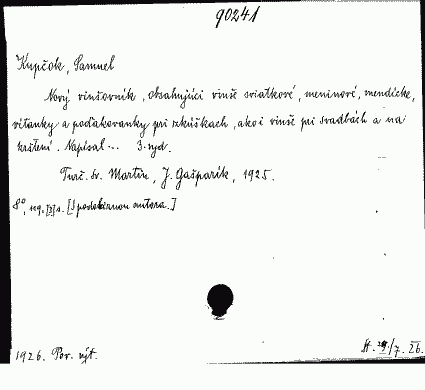 90241
Kupčok, Samuel
Nový vinšovník, obsahujúci vinše sviatkové, meninové, mendícke,
vítanky a poďakovanky pri zkúškach, ako i vinše pri svadbách a na
krštení. Napísal... 3. vyd.
Turč. Sv. Martin, J. Gašparík, 1925.
8°, 119, [1] s. [S podobizňou autora.]
1926. Pov. výt.